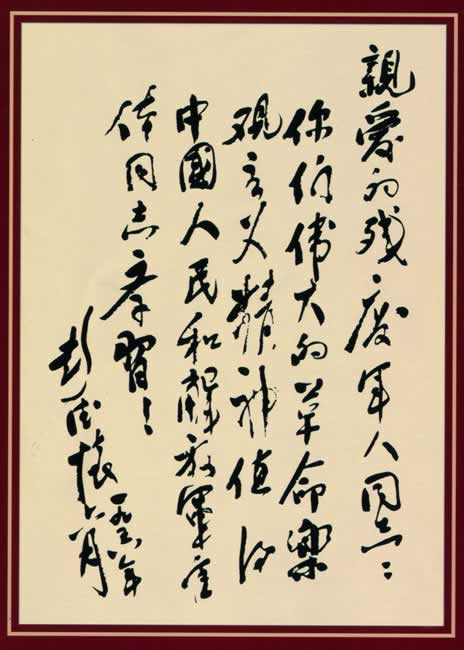 親愛的残廢軍人同志:
你们偉大的革命樂
观主义精神值得
中國人民和解放軍全
体同志学習!
彭德怀
一九五六年